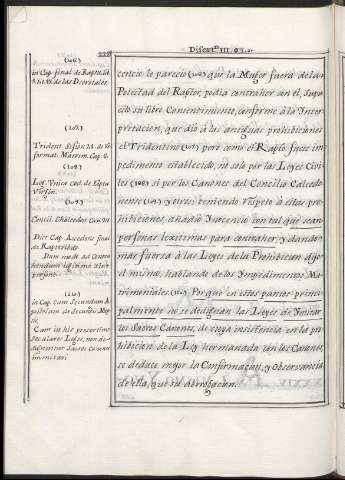 Discert.on III. §3.
(106)
in Cap. final de Raptu lib.
de las Decretales.
(107)
Trident. Sesion 24. de Reformat. Matrim. Cap. 6.
(108)
Leg. Unica Cod. de Raptu
Virgin.
(109)
Concil. Chalcedon Can
Dict. Cap. Accedens final
de Raptoribus.
Dum modo ad Contrahendum
persone.
(210)
in Cap. Cum Secundum Apostolum
de
Cum in his precertim
Seculares Leges, non dedignentur
Sacros Canones
immitari
cencio le pareció (106) que la Muger fuera de la
Potestad del Raptor, podia contraher con el, Supuesto
su libre Consentimiento, conforme à la Interpretacion,
que dió à las antiguas prohibiciones
el Tridentino (107) pero como el Rapto fuese impedimento
establecido, no solo por las Leyes Civiles
(108) si por los Canones del Concilio Calcedonense
(109) y otros; teniendo respeto à estas prohibiciones,
añadió Inocencio con tal que sean
personas lexitimas para contraher, y dando
mas fuerza à las Leyes de la Prohibicion dijo
el mismo, hablando de los Impedimentos Matrimoniales
(110) Porque en estos puntos principalmente
no se dedignan las Leyes de Ymitar
los Sacros Canones, de cuya insistencia en la prohibicion
de la Ley hermanada con los Canones,
se deduce mejor la Confirmacion, y Observancia
de ella, que su abrogacion.